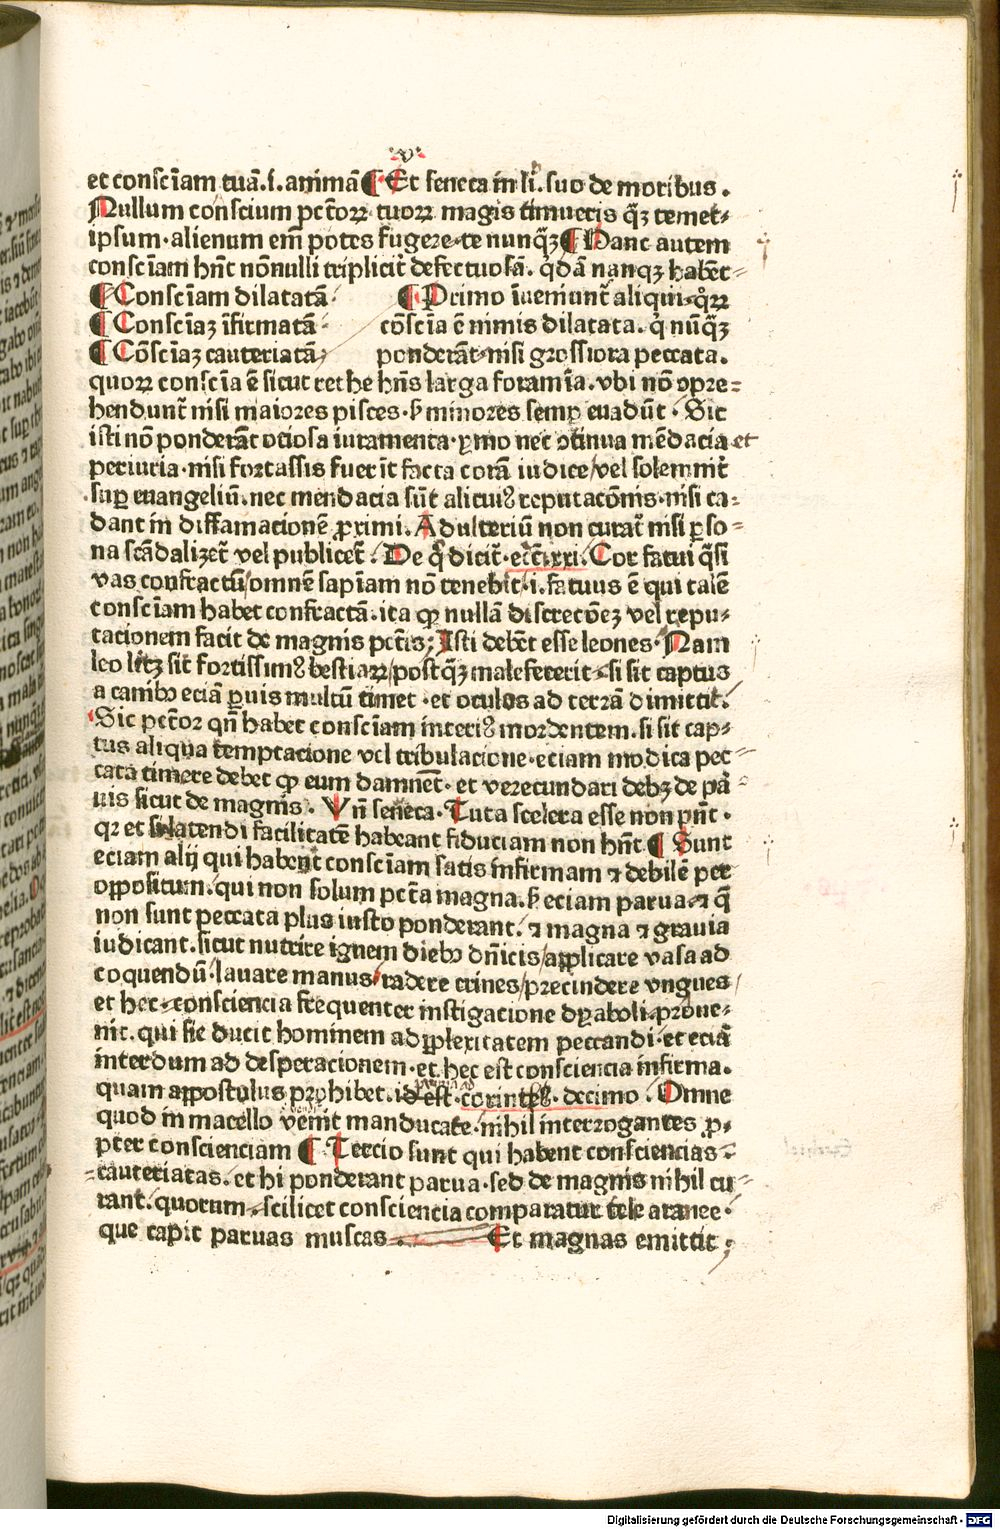 v
et consciam tuã. s. animã ¶ Et seneca in li. suo de moribus.
Nullum conscium pctoꝝ tuoꝝ magis timueris q̃ꝫ temet-
ipsum. alienum em̃ potes fugere. te nunq̃ꝫ ¶ Hanc autem
consc̃iam hñt nõnulli tripliciť defectuosã. q̓dã nanqꝫ habẽt-
¶ Consc̃iam dilatatã. ¶ Primo ĩueniunť aliqui. q̊ꝝ
¶ Consc̃iaꝫ ĩfirmatã. cõsc̃ia ẽ nimis dilatata. q̓ nũq̃ꝫ
¶ Cõsc̃iaꝫ cauteriatã, ponderãt. nisi grossiora peccata.
quoꝝ consc̃ia ẽ sicut rethe hñs larga foramĩa. vbi nõ ꝯpre-
hendunť nisi maiores pisces. ꝫ minores semꝑ euadũt. Sic
isti nõ ponderãt ociosa iuramenta. ỹmo nec ꝯtinua mẽdacia et
periuria. nisi fortassis fuerĩt facta corã iudice/ vel solemniť
suꝑ euangeliũ. nec mendacia sũt alicuiꝰ reputacõnis. nisi ca-
dant in diffamacionẽ ꝓximi. Adulteriũ non curať nisi ꝑso-
na scãdalizeť vel publiceť. De q̓ dicit. ecc̃i. xxi. Cor fatui q̃si
vas confractũ/ omnẽ sap̃iam nõ tenebit. i. fatuus ẽ qui talẽ
consc̃iam habet confractã. ita ꝙ nullã discrecõeꝫ vel repu-
tacionem facit de magnis pctĩs; Isti debẽt esse leones. Nam
leo licꝫ sit fortissimꝰ bestiaꝝ/ postq̃ꝫ malefecerit. si sit captus
a canibꝰ eciã ꝑuis multũ timet. et oculos ad terrã dimittit.
Sic pctoꝛ qñ habet consc̃iam interiꝰ mordentem. si sit cap-
tus aliqua temptacione vel tribulacione. eciam modica pec-
cata timere debet ꝙ eum damnẽt. et verecundari debꝫ de pã-
uis sicut de magnis. Vñ seneca. Tuta scelera esse non pñt.
qꝛ et si latendi facilitatẽ habeant fiduciam non hñt ¶ Sunt
eciam alij qui habent consc̃iam satis infirmam ⁊ debilẽ per
oppositum. qui non solum pctã magna. ꝫ eciam parua. ⁊ q̃
non sunt peccata plus iusto ponderant. ⁊ magna ⁊ grauia
iudicant. sicut nutrire ignem diebꝰ dñicis/ applicare vasa ad
coquendũ. lauare manus/ radere crines/ precindere vngues/
et hec. consciencia frequenter instigacione dyaboli. proue-
nit. qui sic ducit hominem ad ꝑplexitatem peccandi. et eciã
interdum ad desperacionem. et hec est consciencia infirma.
quam appostulus prohibet. id est. corintħ. decimo. Omne
quod in macello venit manducate. nihil interrogantes ꝓ-
pter conscienciam ¶ Tercio sunt qui habent consciencias
cauteriatas. et hi ponderant parua. sed de magnis nihil cu-
rant. quorum. scilicet consciencia comparatur tele aranee.
que capit paruas muscas. Et magnas emittit;
Digitalisierung gefördert durch die Deutsche Forschungsgemeinschaft - DFG